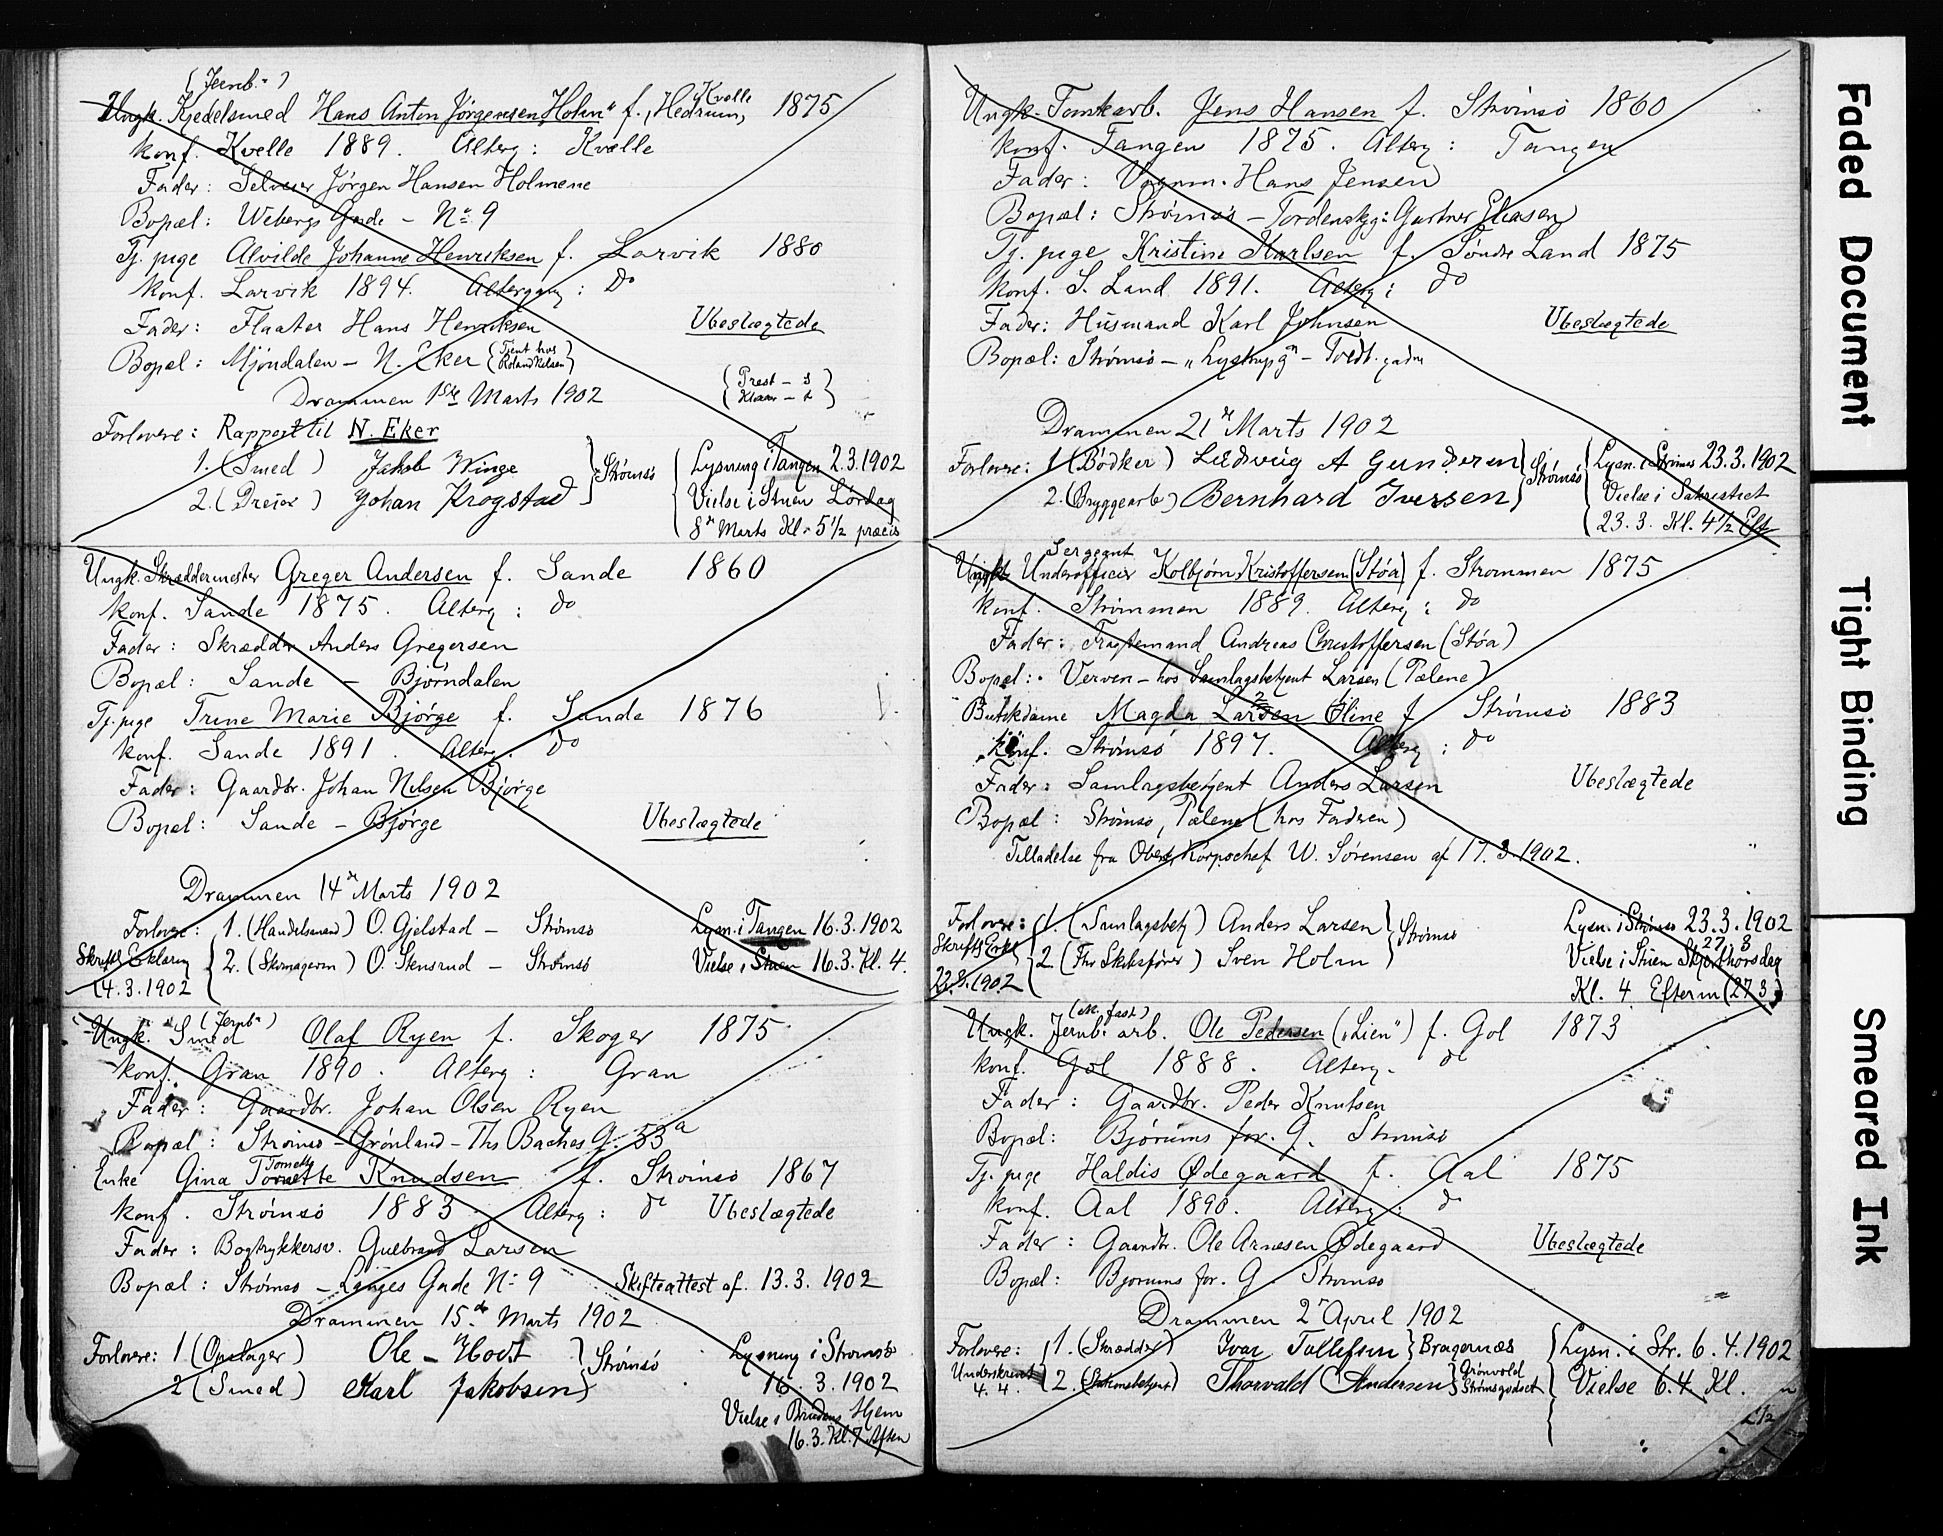 (Jernb.)
Ungk. Kjedelsmed Hans Anton Jørgensen „Holm" f. Hedrum, Kvelle 1875
konf. Kvelle 1889. Alterg: Kvelle
Fader: Selveier Jørgen Hansen Holmene
Bopæl: Webergs Gade – No 9
Tj. pige Alvilde Johanne Henriksen f. Larvik 1880
konf. Larvik 1894. Altergang: do
Fader: Flaater Hans Henriksen Ubeslægtede
Bopæl: Mjøndalen – N. Eker (Tjent hos
Drammen 1ste Marts 1902 (Prest –
Forlovere: Rapport til N. Eker
1. (Smed) Jakob Winge Strømsø Lysning i Tangen 2.3.1902
2. (Dreier) Johan Krogstad Vielse i Stuen Lørdag
8de Marts Kl. 5½ præcis
Ungk. Skræddermester Greger Andersen f. Sande 1860
konf. Sande 1875. Alterg: do
Fader: Skrædder Anders Gregersen
Bopæl: Sande – Bjørndalen
Tj. pige Trine Marie Bjørge f. Sande 1876
konf. Sande 1891. Alterg. do
Fader: Gaardbr. Johan Nilsen Bjørge
Bopæl: Sande – Bjørge Ubeslægtede
Drammen 14de Marts 1902
Forlover: 1. (Handelsmand) O. Gjelstad – Strømsø Lysn. i Tangen 16.3.1902
Skriftl Erklæring 2. (Skomagerm) O. Skusrud – Strømsø Vielse i Stuen 16.3. Kl. 4.
14.3.1902
(Jernb.)
Ungk. Smed Olaf Ryen f. Skoger 1875
konf. Gran 1890. Alterg: Gran
Fader: Gaardbr. Johan Olsen Ryen
Bopæl: Strømsø – Grønland – Ths Baches G. 53a
Enke Gina Tomette Knudsen f. Strømsø 1867
konf. Strømsø 1883. Alterg: do Ubeslægtede
Fader: Bogtrykkersv. Gulbrand Larsen
Bopæl: Strømsø – Langes Gade No 9 Skifteattest af 13.3.1902
Drammen 15de Marts 1902
Forlovere: 1 (Opslager) Ole Hovt Strømsø Lysning i Strømsø
2 (Smed) Karl Jakobsen 16.3.1902
Vielse i Brudens Hjem
16.3. Kl. 7 Aften
Ungk. Tomtearb. Jens Hansen f. Strømsø 1860
konf. Tangen 1875. Alterg: Tangen
Fader: Vognm. Hans Jensen
Bopæl: Strømsø – Tordenskg: Gartner Eliasen
Tj. pige Kristine Karlsen f. Søndre Land 1875
konf. S. Land 1891. Alterg: do
Fader: Husmand Karl Johnsen Ubeslægtede
Bopæl: Strømsø –
Drammen 21de Marts 1902
Forlovere: 1 (Bødker) Ludvig A Gundersen Strømsø Lysn. i Strømsø 23.3.1902
2. (Bryggearb) Bernhard Iversen Vielse i Sakristiet
23.3. Kl. 4½ Eft
Sergeant
Ungk. Underofficer Kolbjørn Kristoffersen (Støa) f. Strømmen 1875
konf. Strømmen 1889. Alterg: do
Fader: Andreas Christoffersen (Støa)
Bopæl: Verven – hos Samlagsbetjent Larsen (Pælene)
Butikdame Magda Larsen Oline f Strømsø 1883
konf. Strømsø 1897. Alterg: do
Fader: Samlagsbetjent Anders Larsen Ubeslægtede
Bopæl: Strømsø, Pælene (hos Faderen)
Tilladelse fra Oberst, Korpschef W. Sørensen af 17.3.1902.
Forlovere: 1. (Samlagsbetj) Anders Larsen Strømsø Lysn. i Strømsø 23.3.1902
Skriftl Erkl 2. (Fhv Skibsfører) Sven Holm Vielse i Stuen Skjærthorsdag
22.3.1902 Kl. 4 Efterm (27.3)
(M. fast)
Ungk. Jernb. arb. Ole Pedersen („Lien") f. Gol 1873
konf. Gol 1888. Alterg. do
Fader: Gaardbr. Peder Knutsen
Bopæl: Bjørums for. G. Strømsø
Tj. pige Haldis Ødegaard f. Aal 1875
konf. Aal 1890. Alterg: do
Fader: Gaardbr. Ole Arnesen Ødegaard Ubeslægtede
Bopæl: Bjørums for. G. Strømsø
Drammen 2 April 1902
Forlovere: 1. (Skrædder) Ivar Tollefsen Bragernæs Lysn. i Str. 6.4.1902
Underskrevet 2. (Stationsbetjent) Thorvald Andersen Grønvold Strømsgodset Vielse 6.4. Kl.
4.4.
Faded Document
Tight Binding
Smeared Ink